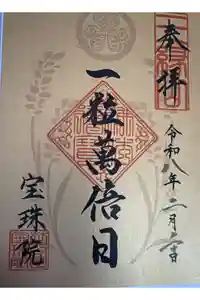 奉拝
令和八年二月
一粒萬倍日
宝珠院